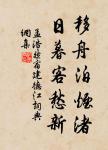 移舟泊煙渚
日暮客愁新
孟浩然宿建德江詞典
網集